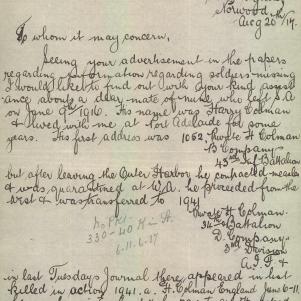 Norwood
Aug 20th /17.
To whom it may concern,
Seeing your advertisement in the papers
regarding information regarding soldiers missing
I would like to find out with your kind assist
ance about a dear mate of mine who left S.A
on June 9th 1916. His name was Harry Colman
& lived with me at Port Adelaide for some
years. His first address was 1052, Private H. Colman
B Company
43rd Inf Battalion
but after leaving the Outer Harbor he contracted measles
& was quarantined at W.A. he proceeded from the
West & was transferred to 1941
Private H Colman.
Battalion
D. Company
3rd Division
A.I.F.
330-40
6.11.6.17
in last Tuesdays Journal there appeared in list
killed in action 1941. a. H. Colman England June 6-11